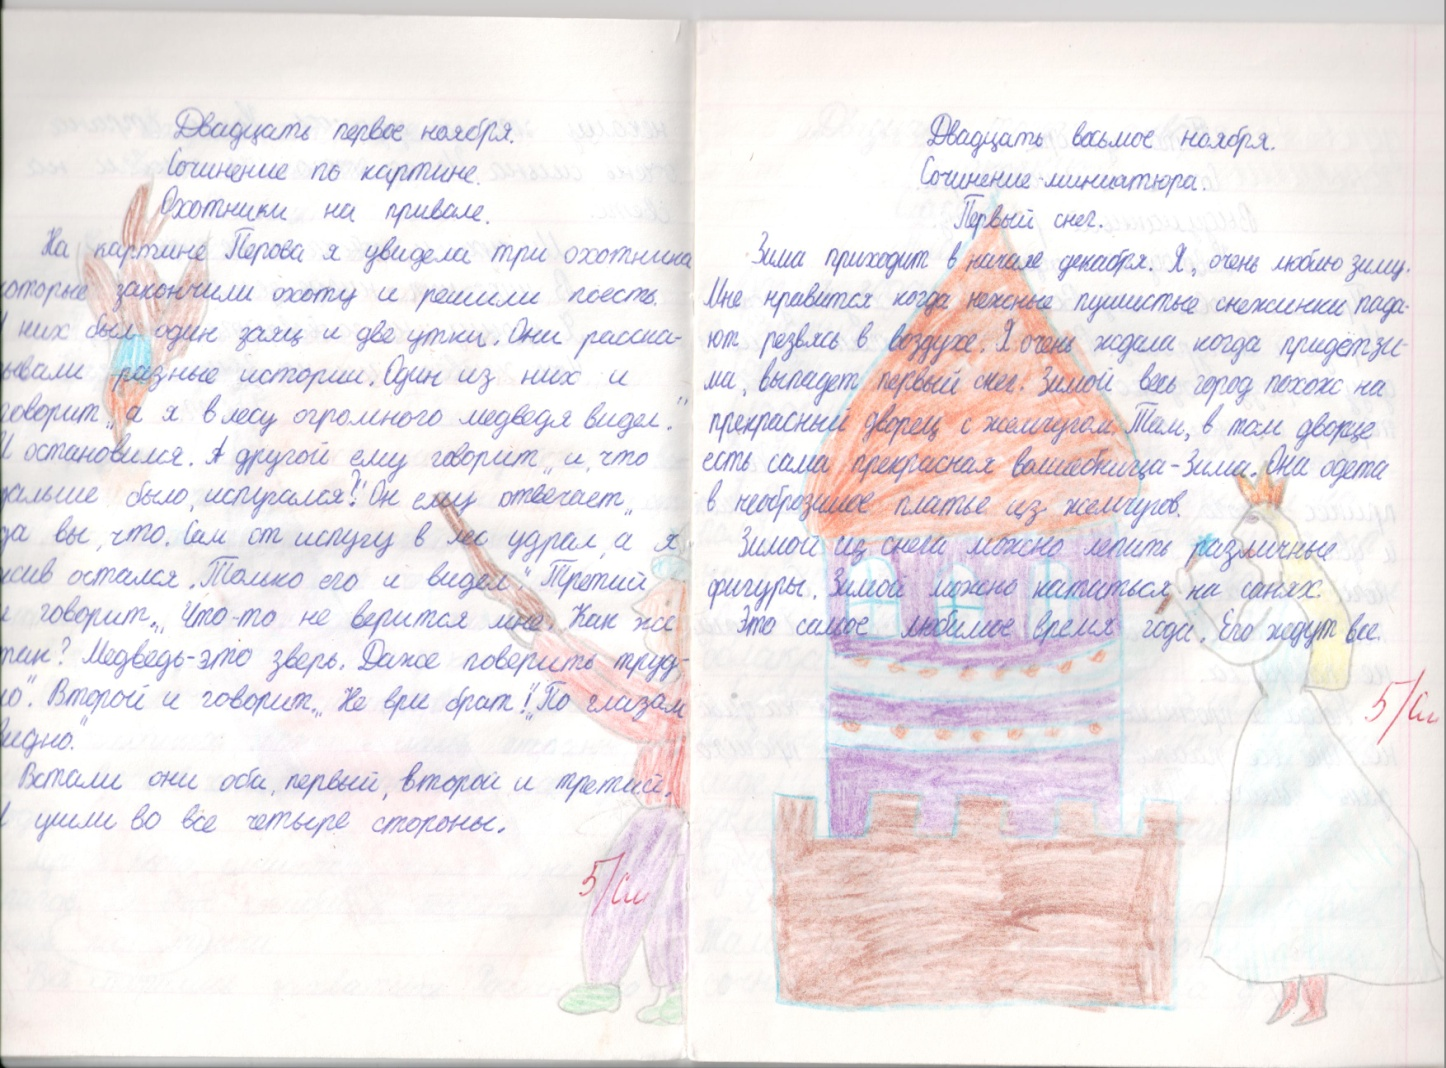 Двадцать первое ноября.
Сочинение по картине.
Охотники на привале.
На картине Перова я увидела три охотника
которые закончили охоту и решили поесть.
У них был один заяц и две утки. Они расска-
зывали разные истории. Один из них и
говорит „а я в лесу огромного медведя видел."
И остановился. А другой ему говорит „и, что
дальше было, испугался?" Он ему отвечает „
да вы, что. Сам от испугу в лес удрал, а я
жив остался. Только его и видел". Третий
и говорит „ Что-то не верится мне. Как же
так? Медведь-это зверь. Даже поверить труд-
но". Второй и говорит „ Не ври брат!" По глазам
видно."
Встали они оба, первый, второй и третий.
И ушли во все четыре стороны.
5/См
Двадцать восьмое ноября.
Сочинение-миниатюра.
Первый снег.
Зима приходит в начале декабря. Я, очень люблю зиму.
Мне нравится когда нежные пушистые снежинки пада-
ют резвясь в воздухе. Я очень ждала когда придёт зи-
ма, выпадет первый снег. Зимой весь город похож на
прекрасный дворец с жемчугом. Там, в том дворце
есть сама прекрасная волшебница-Зима. Она одета
в необразимое платье из жемчугов.
Зимой из снега можно лепить различные
фигуры. Зимой можно кататься на санях.
Это самое любимое время года. Его ждут все.
5/См